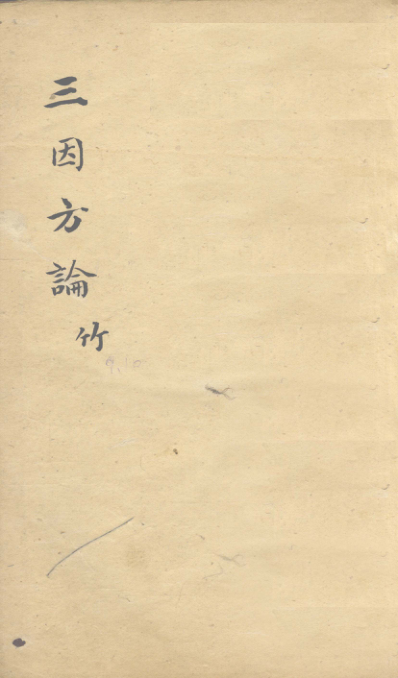 三因方論
竹
9,10